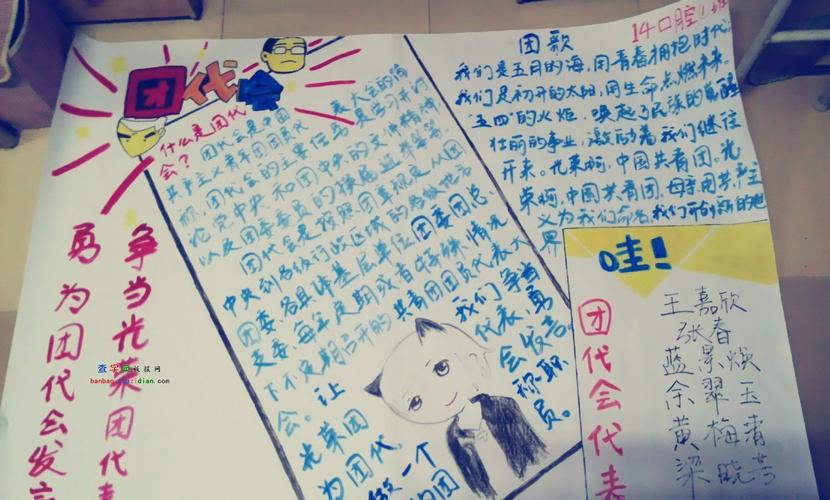 14口腔1班
团代会
什么是团代
会？团代会是中国
共产主义青年团团员代表大会的简
称，团代会的主要任务是学习并讨
论党中央和团中央的文件精神，
以及团委委员的换届选举等等。
团代会是按照团章规定从团
中央到各级行政区域的各级地方
团委、各具体基层单位团委团总
支委每年定期或者特殊情况
下不定期召开的共青团团员代表大
会。让我们争当
光荣团代表，勇
为团代会发言。
做一个称职
的团员。
争当光荣团代表
勇为团代会发言
查字典教投网
banbao.chazidian.com
团歌
我们是五月的海，用青春拥抱时代。
我们是初开的太阳，用生命点燃未来。
“五四”的火炬，唤起了民族的觉醒
壮丽的事业，激励着我们继往
开来。光荣啊，中国共青团。光
荣啊，中国共青团，母亲用共产主
义为我们命名，我们开创新的世
界
哇！
团代会代表
王嘉欣
张春
蓝景焕
余翠玉
黄梅青
梁晓芳